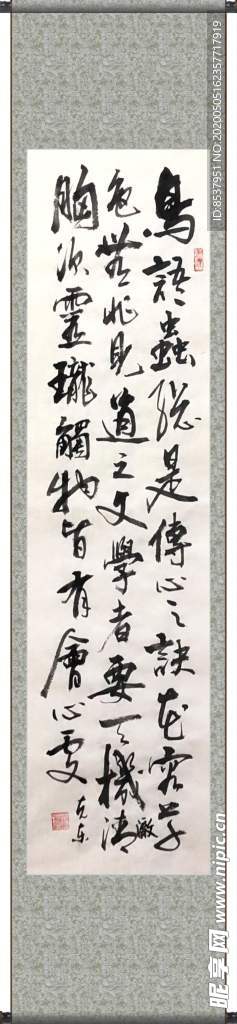 鳥語蟲總是傳心之訣花容草
色無非見道之文學者要天機清澈
胸次靈瓏觸物皆有會心處
ID:8537951 NO:20200505162357717919
昵享网 www.nipic.cn